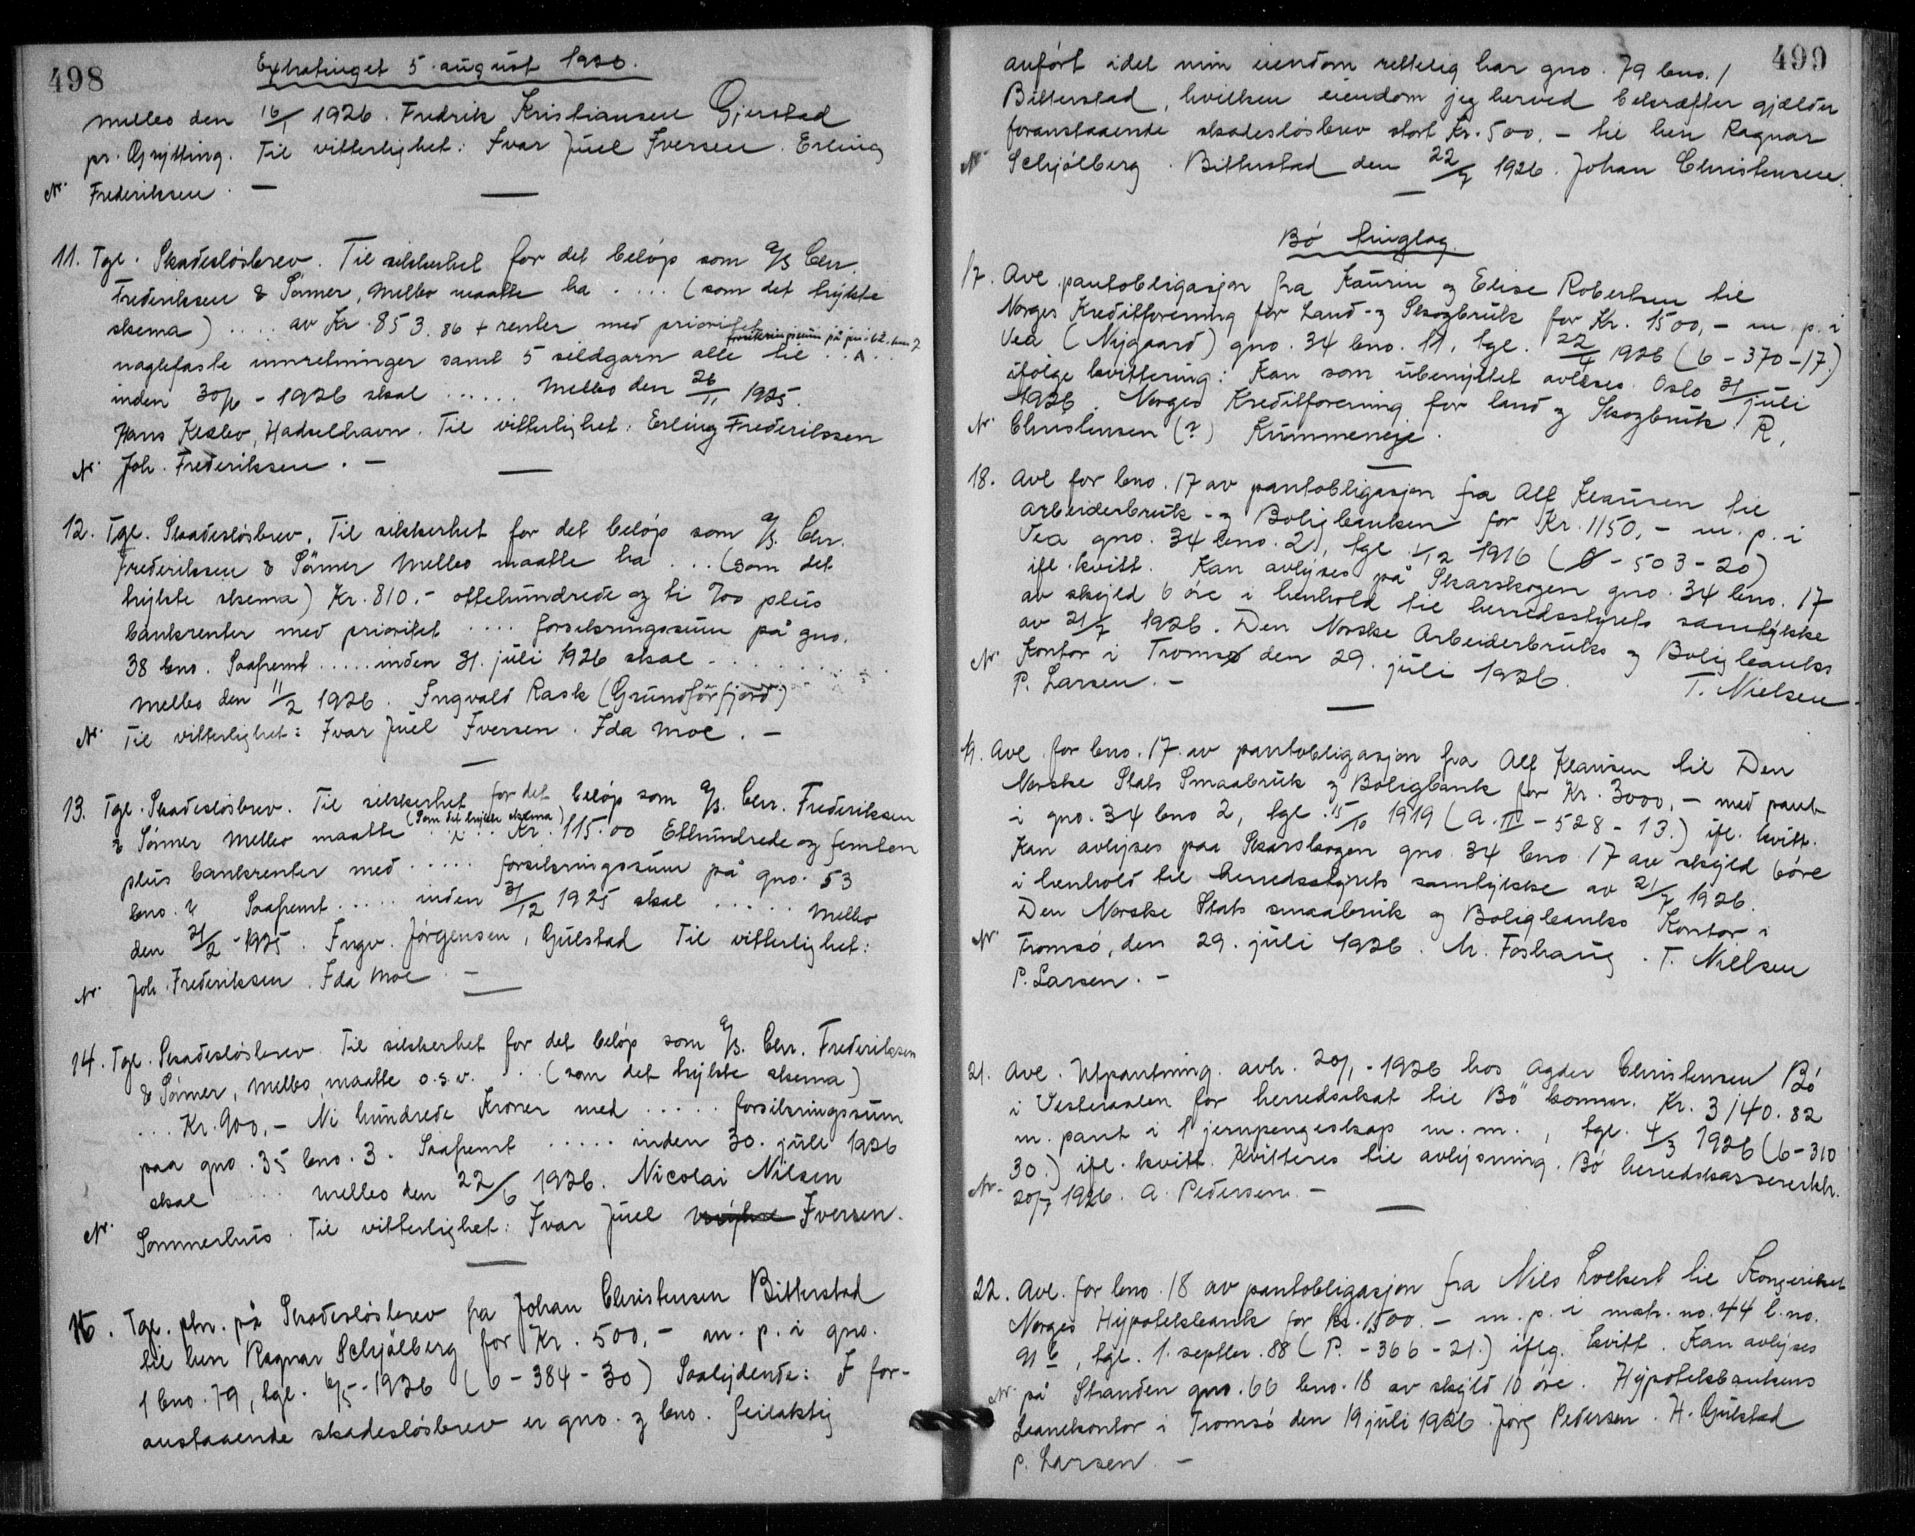 498
Extratinget 5. august 1926.
Melbo den 16/1 1926. Fredrik Kristiansen Gjerstad
pr. Grytting. Til vitterlighet: Ivar Juel Iversen. Erling
Nr. Frederiksen. —
11. Tgl. Skadesløsbrev. Til sikkerhet for det beløp som A/S Chr.
Frederiksen & Sønner, Melbo maatte ha .... (som det trykte
skema) .... av Kr. 853.86 + renter med prioritet
forsikringssum på gno. 62. bno 7
naglefaste innretninger samt 5 sildgarn alle til .....
inden 30/6 - 1926 skal ...... Melbo den 26/11 1925.
Hans Klebo, Hadselhavn. Til vitterlighet: Erling Frederikssen
Nr. Joh. Frederiksen. —
12. Tgl. Skadesløsbrev. Til sikkerhet for det beløp som A/S. Chr.
Frederiksen & Sønner Melbo maatte ha ... (som det
trykte skema) Kr. 810.- ottehundrede og ti %00 plus
bankrenter med prioritet .... forsikringssum på gno.
38 bno. Saafremt ..... inden 31. juli 1926 skal .........
Melbo den 11/2 1926. Ingvald Rask (Grundförfjord)
Nr. Til vitterlighet: Ivar Juel Iversen. Ida Moe. —
13. Tgl. Skadesløsbrev. Til sikkerhet for det beløp som A/S. Chr. Frederiksen
& Sønner Melbo maatte (som det trykte skema) .... Kr. 115.00 Ethundrede og femten
plus bankrenter med ..... forsikringssum på gno. 53
bno. 2 Saafremt ..... inden 31/12 1925 skal ...... Melbo
den 21/2 - 1925. Ingv. Jørgensen, Gulstad Til vitterlighet:
Nr. Joh. Frederiksen. Ida Moe —
14. Tgl. Skadesløsbrev. Til sikkerhet for det beløp som A/S. Chr. Frederiksen
& Sønner, Melbo, maatte o.s.v. ... (som det trykte skema)
... Kr. 900,- Ni hundrede Kroner med ..... forsikringssum
paa gno. 35 bno. 3. Saafremt ..... inden 30. juli 1926
skal .... Melbo den 22/6 1926. Nicolai Nilsen
Nr. Sommerhus. Til vitterlighet: Ivar Juel Iversen.
16. Tgl. phr. på Skadesløsbrev fra Johan Christensen Bitterstad
til hrr Ragnar Schjølberg for Kr. 500,- m. p. i gno.
1 bno. 79, tgl. 6/5 - 1926 (6 - 384 - 30) Saalydende: I for-
anstaaende skadesløsbrev er gno. og bno. feilaktig
499
anført idet min eiendom rettelig har gno. 79 bno. 1
Bitterstad, hvilken eiendom jeg herved bekræfter gjælder
foranstaaende skadesløsbrev stort Kr. 500.- til herr Ragnar
Nr. Schjølberg. Bitterstad den 22/7 1926. Johan Christensen.
Bø tinglag.
17. Avl. pantobligasjon fra Kaurin og Elise Robertsen til
Norges Kreditforening for Land- og Skogbruk for Kr. 1500,- m. p. i
Vea (Nygaard) gno. 34 bno. 11, tgl. 22/4 1926 (6 - 370 - 17.)
ifølge kvittering: Kan som ubenyttet avlæses. Oslo 31/juli
1926. Norges Kreditforening for land og Skogbruk. R.
Nr. Christensen (?) Krummeneje.
18. Avl. for bno. 17 av pantobligasjon fra Alf Klausen til
Arbeiderbruk- og Boligbanken for Kr. 1150,- m. p. i
Vea gno. 34 bno. 2, tgl. 1/12 1916 (6 - 503 - 20)
ifl. kvitt. Kan avlyses på Skarskogen gno. 34 bno. 17
av skyld 6 öre i henhold til herredsstyrets samtykke
av 21/7 1926. Den Norske Arbeiderbruks og Boligbanks
Nr. Kontor i Tromsø den 29. juli 1926. T. Nielsen
P. Larsen. —
19. Avl. for bno. 17. av pantobligasjon fra Alf Klausen til Den
Norske Stats Smaabruk og Boligbank for Kr. 3000,- med pant
i gno. 34 bno 2, tgl. 15/10 1919 (A. II - 528 - 13.) ifl. kvitt.
Kan avlyses paa Skarskogen gno. 34 bno. 17 av skyld 6 öre
i henhold til herredsstyrets samtykke av 21/7 1926.
Den Norske Stats smaabruk og Boligbanks Kontor i
Nr. Tromsø, den 29. juli 1926. M. Foshaug. T. Nielsen
P. Larsen. —
21. Avl. Utpantning. avh. 20/1 - 1926 hos Agder Christensen Bø
i Vesteraalen for herredsskat til Bø komm. Kr. 3140.82
m. pant i 1 jernpengeskap m. m., tgl. 4/3 1926 (6 - 310
30.) ifl. kvitt. Kvitteres til avlysning. Bø herredskassererktr.
Nr. 20/7 1926. A. Pedersen. —
22. Avl. for bno. 18 av pantobligasjon fra Nils Lockert til Kongeriket
Norges Hypotekbank for Kr. 1500.- m. p. i matr. no. 44 l. no.
91 b, tgl. 1. septbr. 88 (P. - 366 - 21.) iflg. kvitt. Kan avlyses
Nr. på Stranden gno. 66 bno. 18 av skyld 10 öre. Hypotekbankens
Laanekontor i Tromsø den 19 juli 1926. Jørg Pedersen. H. Gulstad
P. Larsen. —